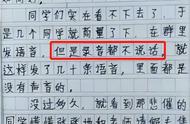 同学们实在看不下去了，于
是几个同学就商量了下，在群
里发语音，但是录音都不说话，就
这样发了几十条语音，里面都是
没有声音的。
没过多久，就看到那悲催的